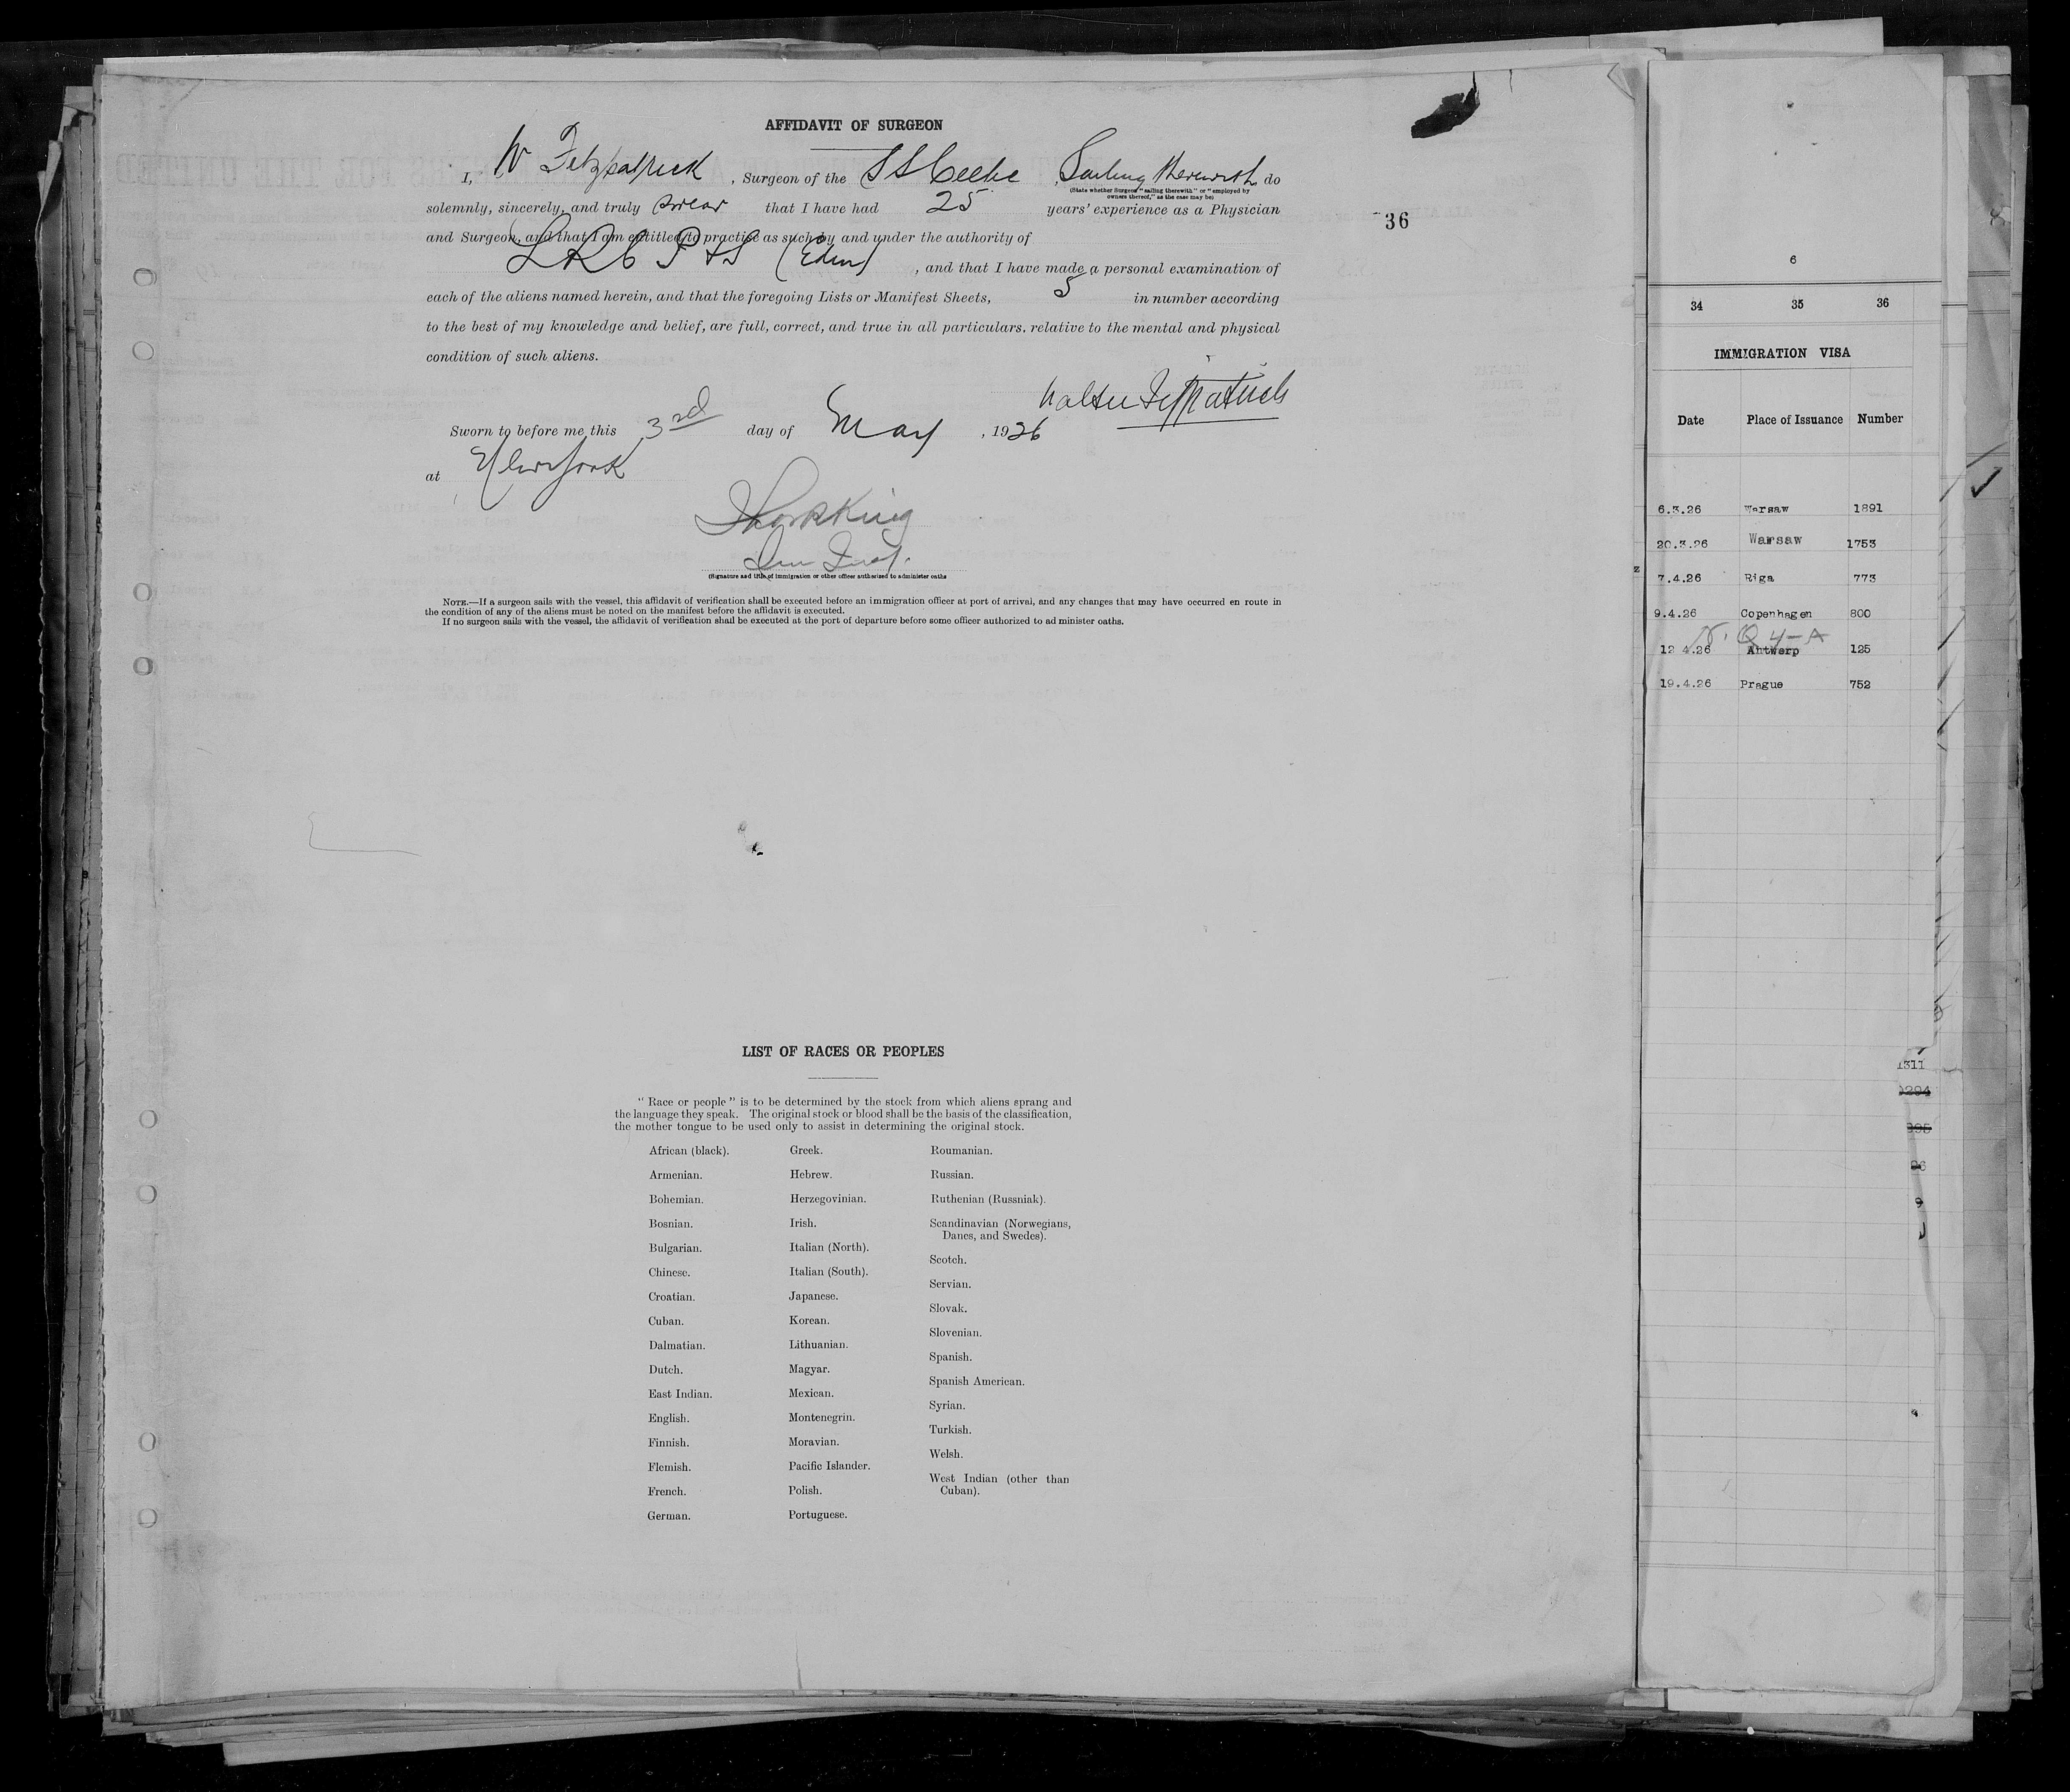 AFFIDAVIT OF SURGEON
I, W Fitzpatrick, Surgeon of the SS Celtic, Sailing therewith do
(State whether Surgeon "sailing therewith" or "employed by
owners thereof," as the case may be)
solemnly, sincerely, and truly swear that I have had 25 years' experience as a Physician
and Surgeon, and that I am entitled to practise as such by and under the authority of
LRC P & S (Edin), and that I have made a personal examination of
each of the aliens named herein, and that the foregoing Lists or Manifest Sheets, 5 in number according
to the best of my knowledge and belief, are full, correct, and true in all particulars. relative to the mental and physical
condition of such aliens.
Walter Fitzpatrick
Sworn to before me this 3rd day of May, 1926
at New York
King
Imm Insp.
(Signature and title of immigration or other officer authorized to administer oaths
NOTE.—If a surgeon sails with the vessel, this affidavit of verification shall be executed before an immigration officer at port of arrival, and any changes that may have occurred en route in
the condition of any of the aliens must be noted on the manifest before the affidavit is executed.
If no surgeon sails with the vessel, the affidavit of verification shall be executed at the port of departure before some officer authorized to ad minister oaths.
36
LIST OF RACES OR PEOPLES
" Race or people " is to be determined by the stock from which aliens sprang and
the language they speak. The original stock or blood shall be the basis of the classification,
the mother tongue to be used only to assist in determining the original stock.
African (black).
Armenian.
Bohemian.
Bosnian.
Bulgarian.
Chinese.
Croatian.
Cuban.
Dalmatian.
Dutch.
East Indian.
English.
Finnish.
Flemish.
French.
German.
Greek.
Hebrew.
Herzegovinian.
Irish.
Italian (North).
Italian (South).
Japanese.
Korean.
Lithuanian.
Magyar.
Mexican.
Montenegrin.
Moravian.
Pacific Islander.
Polish.
Portuguese.
Roumanian.
Russian.
Ruthenian (Russniak).
Scandinavian (Norwegians,
Danes, and Swedes).
Scotch.
Servian.
Slovak.
Slovenian.
Spanish.
Spanish American.
Syrian.
Turkish.
Welsh.
West Indian (other than
Cuban).
6
34 35 36
IMMIGRATION VISA
Date Place of Issuance Number
6.3.26 Warsaw 1891
20.3.26 Warsaw 1753
7.4.26 Riga 773
9.4.26 Copenhagen 800
N. Q 4-A
12 4.26 Antwerp 125
19.4.26 Prague 752
1311